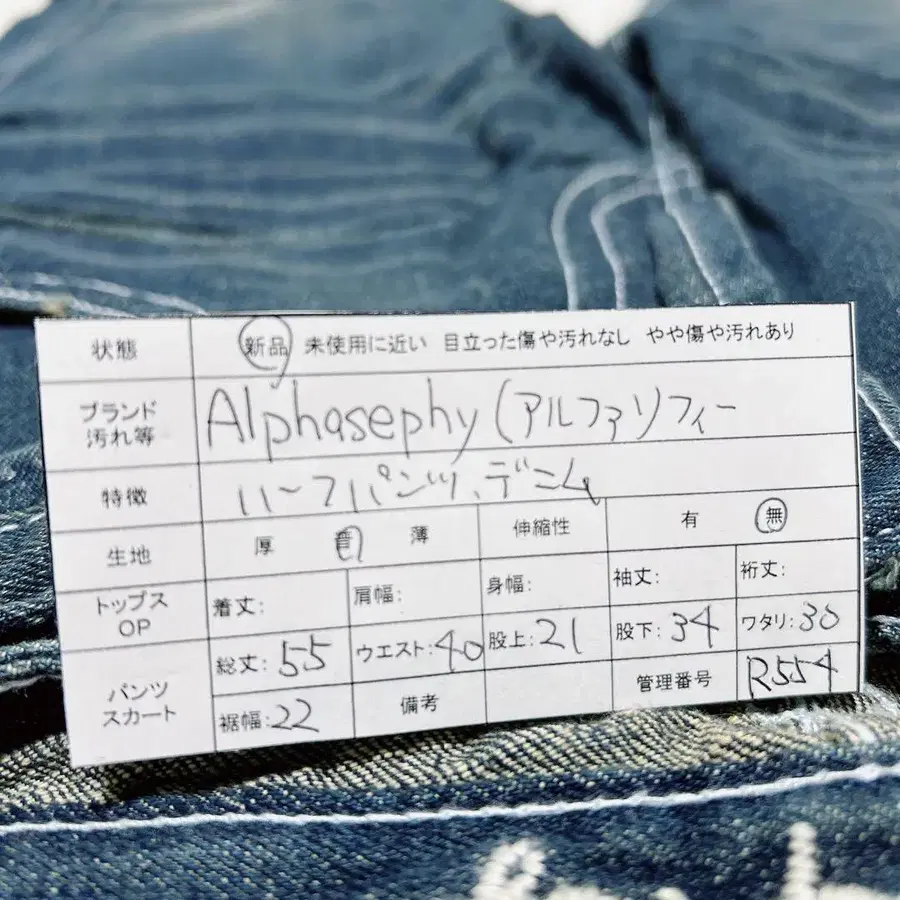 状態 新品 未使用に近い 目立った傷や汚れなし やや傷や汚れあり
ブランド
汚れ等 Alphasephy (アルファソフィー
特徴 ハーフパンツ、デニム
生地 厚 普 薄 伸縮性 有 無
トップス
OP 着丈: 肩幅: 身幅: 袖丈: 裄丈:
パンツ
スカート 総丈:55 ウエスト:40 股上:21 股下:34 ワタリ:30
裾幅:22 備考 管理番号 R554